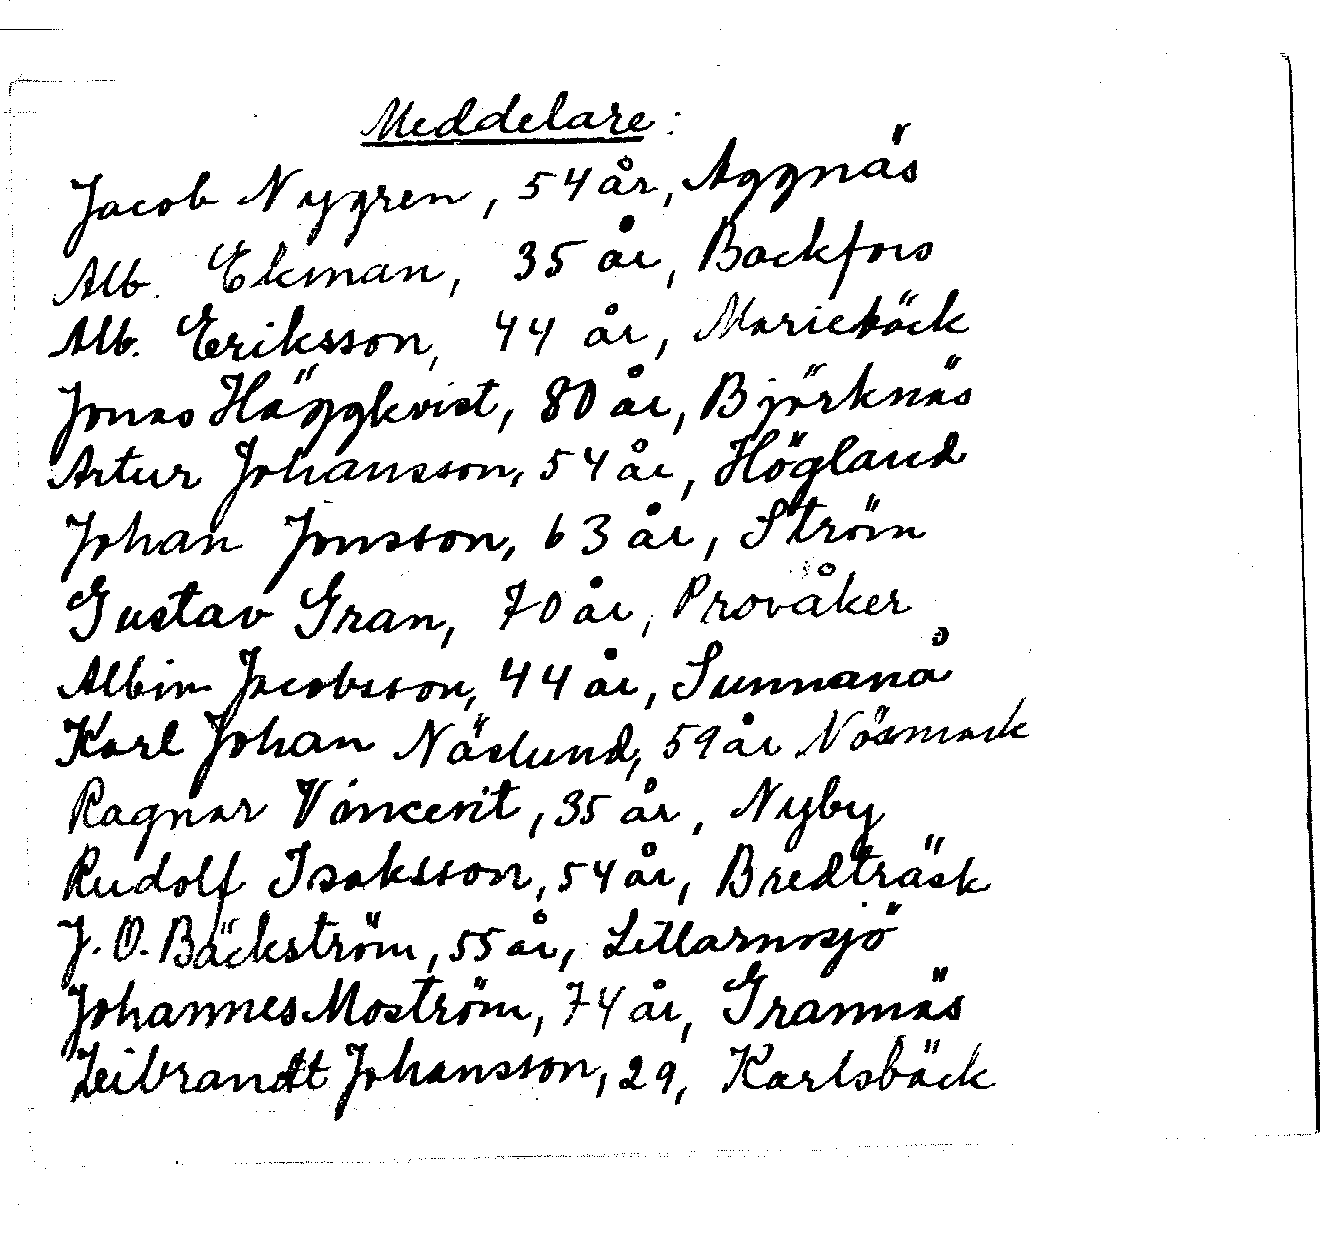 Meddelare:
Jacob Nygren, 54 år, Aggnäs
Alb. Ekman, 35 år, Backfors
Alb. Eriksson, 44 år, Mariebäck
Jonas Häggkvist, 80 år, Björknäs
Artur Johansson, 54 år, Högland
Johan Jonsson, 63 år, Ström
Gustav Gran, 70 år, Provåker
Albin Jacobsson, 44 år, Sunnanå
Karl Johan Näslund, 59 år Nösmark
Ragnar Vincent, 35 år, Nyby
Rudolf Isaksson, 54 år, Bredträsk
J. O. Bäckström, 55 år, Lillarmsjö
Johannes Moström, 74 år, Grannäs
Leibrandt Johansson, 29, Karlsbäck